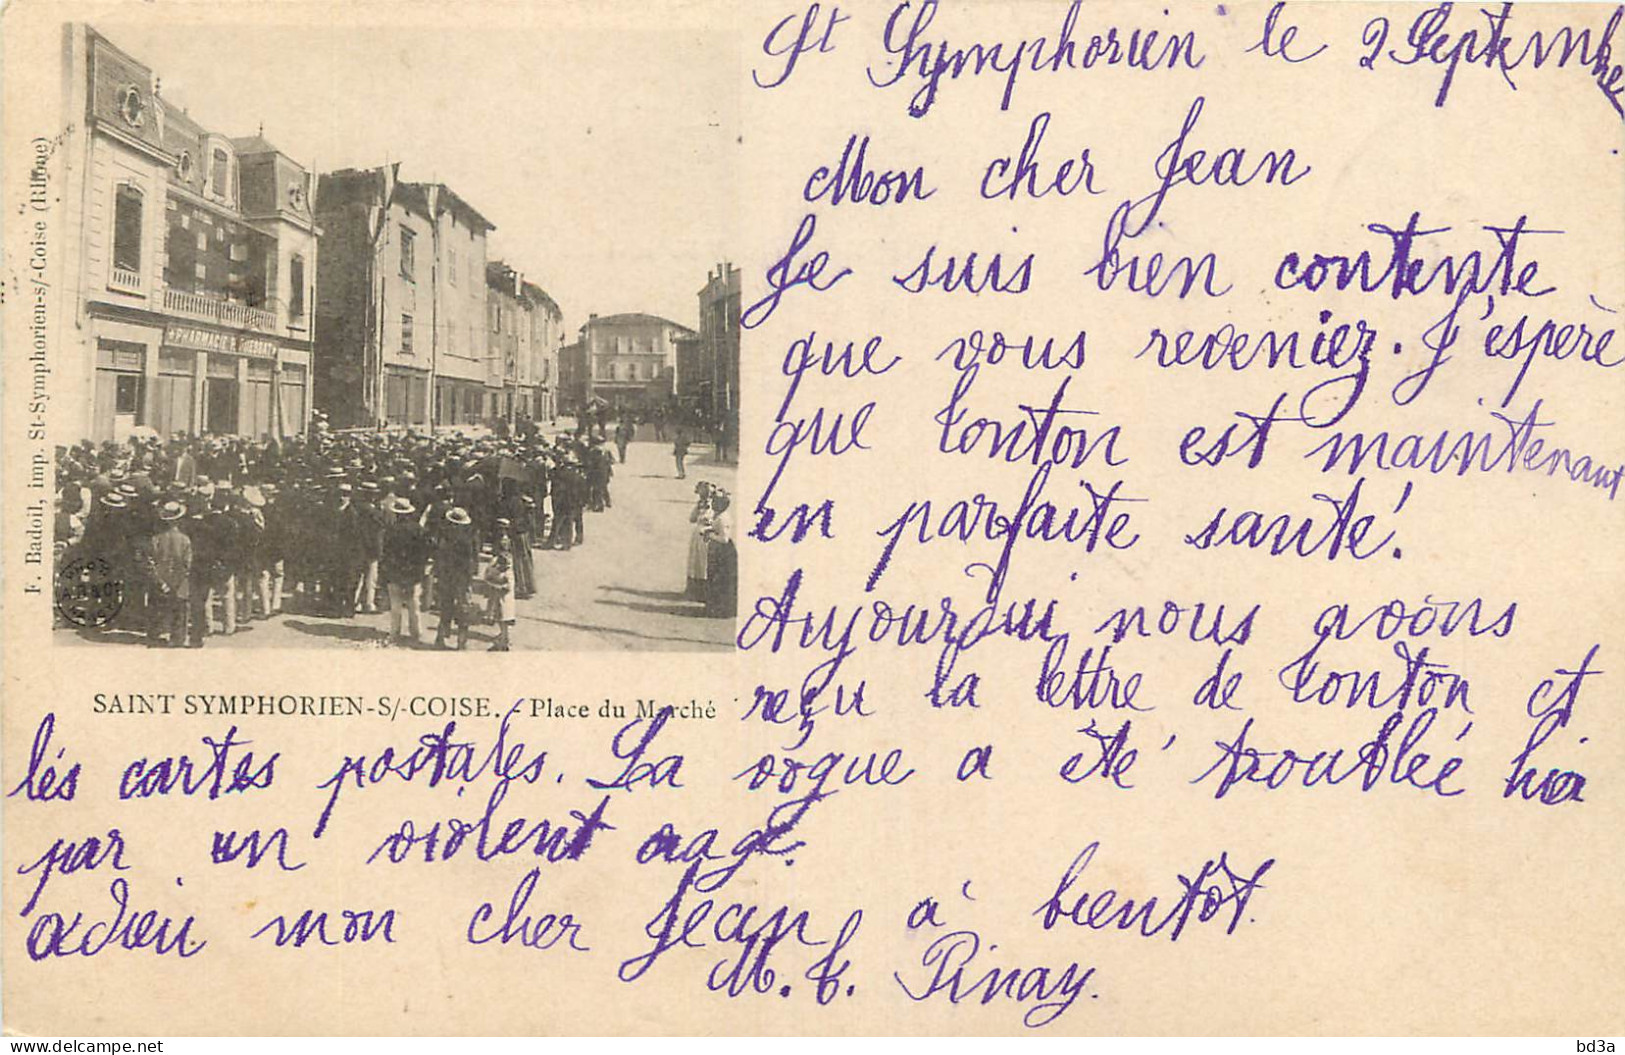 St Symphorien le 2 Septembre
Mon cher Jean
Je suis bien contente
que vous reveniez. J'espère
que Tonton est maintenant
en parfaite santé!
Aujourdui nous avons
reçu la lettre de Tonton et
lés cartes postales. La vogue a été troublée hier
par un violent orage.
adieu mon cher Jean à bientôt.
M. T. Pinay.
SAINT SYMPHORIEN-S/-COISE. - Place du Marché
F. Badoil, imp. St-Symphorien-s/-Coise (Rhône)
PHARMACIE
delcampe.net
bd3a